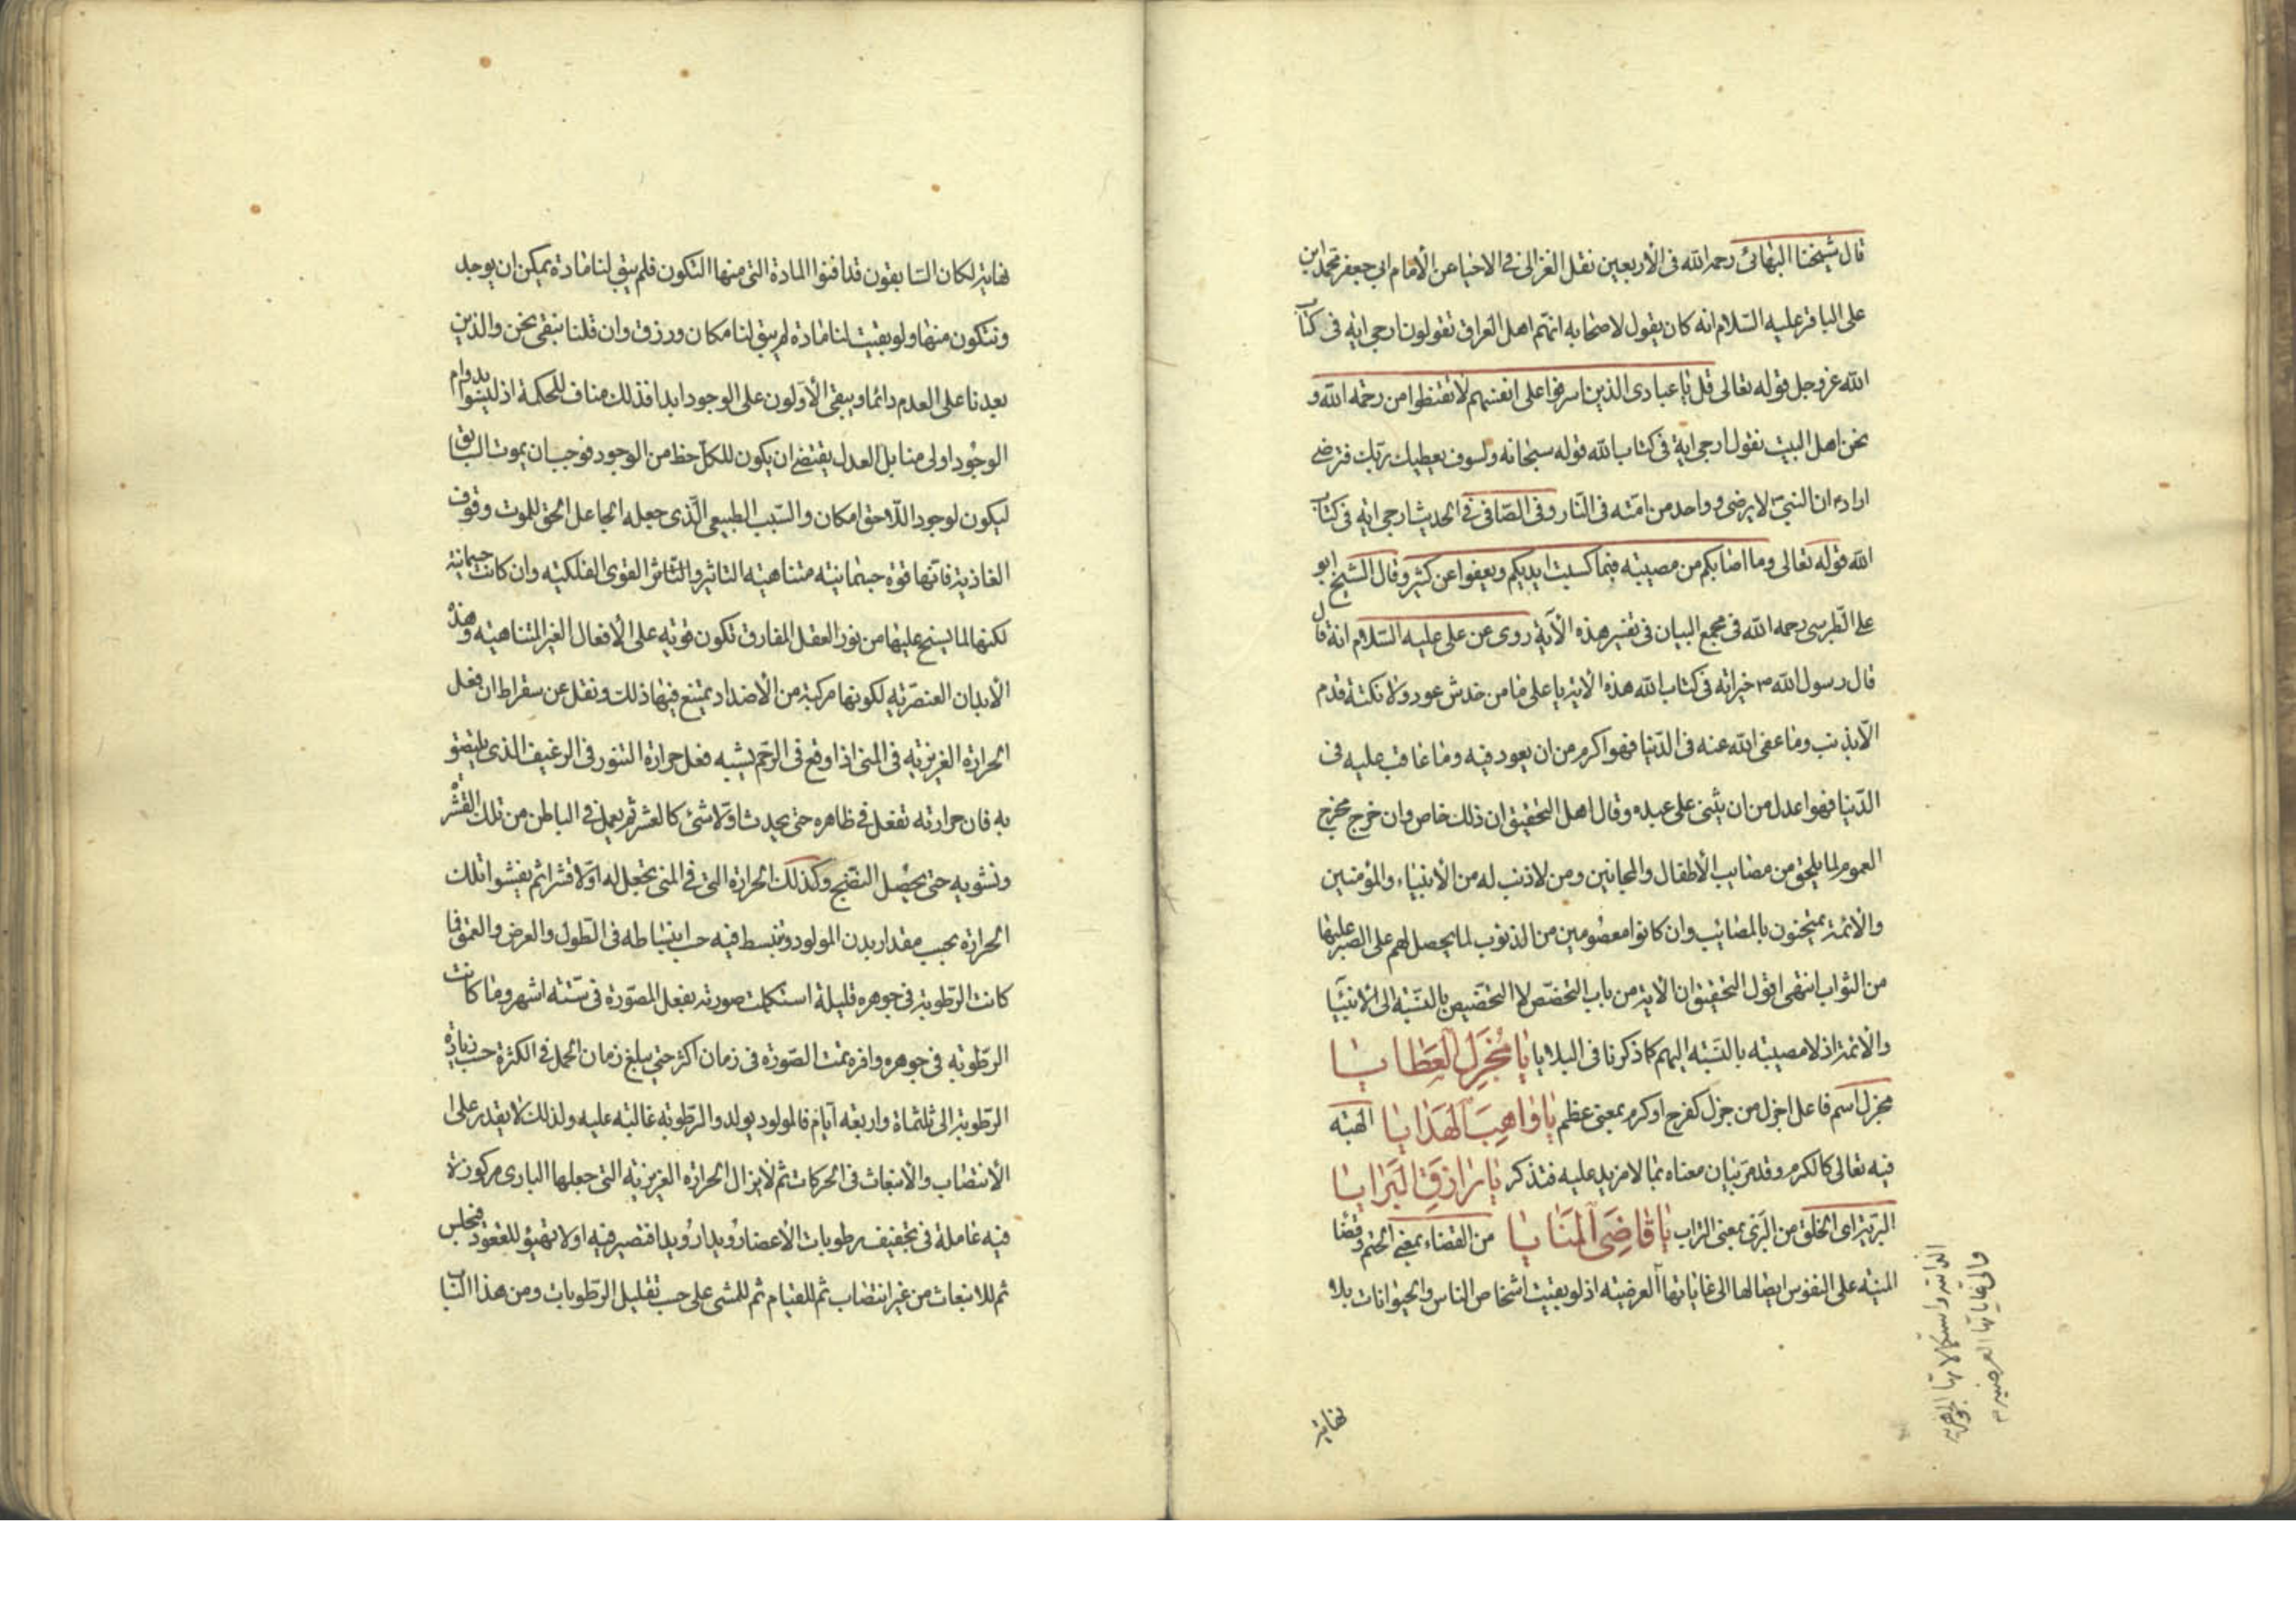 قال شيخنا البهائى رحمه الله فى الأربعين نقل الغزالى فى الاحيا عن الأمام ابى جعفر محمد ابن
على الباقر عليه السّلام انه كان يقول لاصحابه انتم اهل العراق تقولون ارجى ايه فى كتاب
الله عز وجل قوله تعالى قل يا عبادى الذين اسرفوا على انفسهم لا تقنطوا من رحمة الله و
نحن اهل البيت نقول ارجى اية فى كتاب الله قوله سبحانه ولسوف يعطيك ربّك فترضى
اراد ان النبىّ لا يرضى و واحد من امّته فى النّار وفى الصّافى فى الحديث ارجى ايه فى كتاب
الله قوله تعالى وما اصابكم من مصيبته فبما كسبت ايديكم ويعفوا عن كثير وقال الشيخ ابو
على الطّبرسى رحمه الله فى مجمع البيان فى تفسير هذه الآية روى عن على عليه السّلام انه قال
قال رسول الله ص خير ايه فى كتاب الله هذه الايه يا على ما من خدش عود ولا نكتة قدم
الّا بذنب وما عفى الله عنه فى الدّنيا فهو اكرم من ان يعود فيه وما عاقب عليه فى
الدّنيا فهو اعدل من ان يثنى على عبده وقال اهل التحقيق ان ذلك خاص وان خرج مخرج
العموم لما يلحق من مصايب الأطفال والمجانين ومن لا ذنب له من الأنبياء والمؤمنين
والأئمة يمتحنون بالمصائب وان كانوا معصومين من الذنوب لما يحصل لهم على الصبر عليها
من الثواب انتهى اقول التحقيق ان الايه من باب التخصّص لا التخصيص بالنّسبة الى الأنبيا
والأئمة اذ لا مصيبته بالنّسبته اليهم كما ذكرنا فى البلايا يا مُجْزِلَ العَطايا
مجزل اسم فاعل اجزل من جزل كفرح او كرم بمعنى عظم يا واهِبَ الهَدايا الهبته
فيه تعالى كالكرم وقد مرّ بيان معناه بما لا مزيد عليه فتذكر يا رازِقَ البَرايا
البريّة اى الخلق من البرى بمعنى التراب يا قاضِىَ المَنايا من القضاء بمعنى الحتم وقضا
المنيّه على النفوس ايصالها الى غاياتها العرضيته اذ لو بقيت اشخاص الناس والحيوانات بلا
الذاتيه واستكمالاتها الجوهريه
والى غاياتها العرضيه
نهاية
نهاية لكان السّابقون قد افنوا المادة التى منها التكون فلم يبق لنا مادة يمكن ان يوجد
ونتكون منها ولو بقيت لنا مادة لم يبق لنا مكان ورزق وان قلنا نبقى نحن والذين
بعدنا على العدم دائما ويبقى الأوّلون على الوجود ابدا فذلك مناف للحكمة اذ ليسوا بدوام
الوجود اولى منا بل العدل يقتضى ان يكون للكلّ حظ من الوجود فوجب ان يموت السابق
ليكون لوجود اللّاحق امكان والسّبب الطبيعى الّذى جعله الجاعل الحق للموت وقوف
الغاذية فانّها قوّة جسمانيته متناهيته التاثير والتّاثر القوى الفلكيته وان كانت جسمانية
لكنها لما يسنح عليها من نور العقل المفارق تكون قويّه على الأفعال الغير المتناهيته وهذه
الأبدان العنصريّه لكونها مركبة من الأضداد يمتنع فيها ذلك ونقل عن سقراط ان فعل
الحرارة الغريزيّه فى المنى اذا وقع فى الرّحم يشبه فعل حرارة التنور فى الرغيف الذى يلصق
به فان حرارته تفعل فى ظاهره حتى يحدث اوّلا شئ كالقشر ثم يعمل فى الباطن من تلك القشرة
وتشويه حتى يحصل النضج وكذلك الحرارة التى فى المنى تجعل له اوّلا قشرا ثم يفشوا تلك
الحرارة بحسب مقدار بدن المولود وتنبسط فيه حسب انبساطه فى الطّول والعرض والعمق فما
كانت الرّطوبة فى جوهره قليلة استكملت صورته بفعل المصّورة فى ستّته اشهر وما كانت
الرّطوبه فى جوهره وافره تمت الصّورة فى زمان اكثر حتى يبلغ زمان الحمل فى الكثرة حسب زيادة
الرّطوبة الى ثلثمأة واربعه ايّام فالمولود يولد والرّطوبه غالبته عليه ولذلك لا يقدر على
الأنتصاب والأنبعاث فى الحركات ثم لا يزال الحرارة الغريزيّه التى جعلها البارى مركوزة
فيه عاملة فى تجفيف رطوبات الأعضاء رُويدا رُويدا فتصير فيه اولا تهيؤ للقعود فيجلس
ثم للانبعاث من غير انتصاب ثم للقيام ثم للمشى على حسب تقليل الرّطوبات ومن هذا الباب